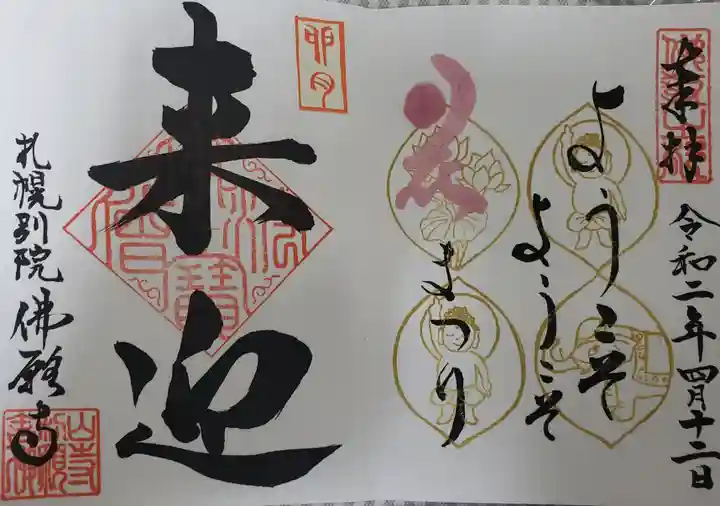 奉拝
令和二年四月十二日
ようこそ
ようこそ
花
まつり
卯月
来迎
札幌別院
佛願寺